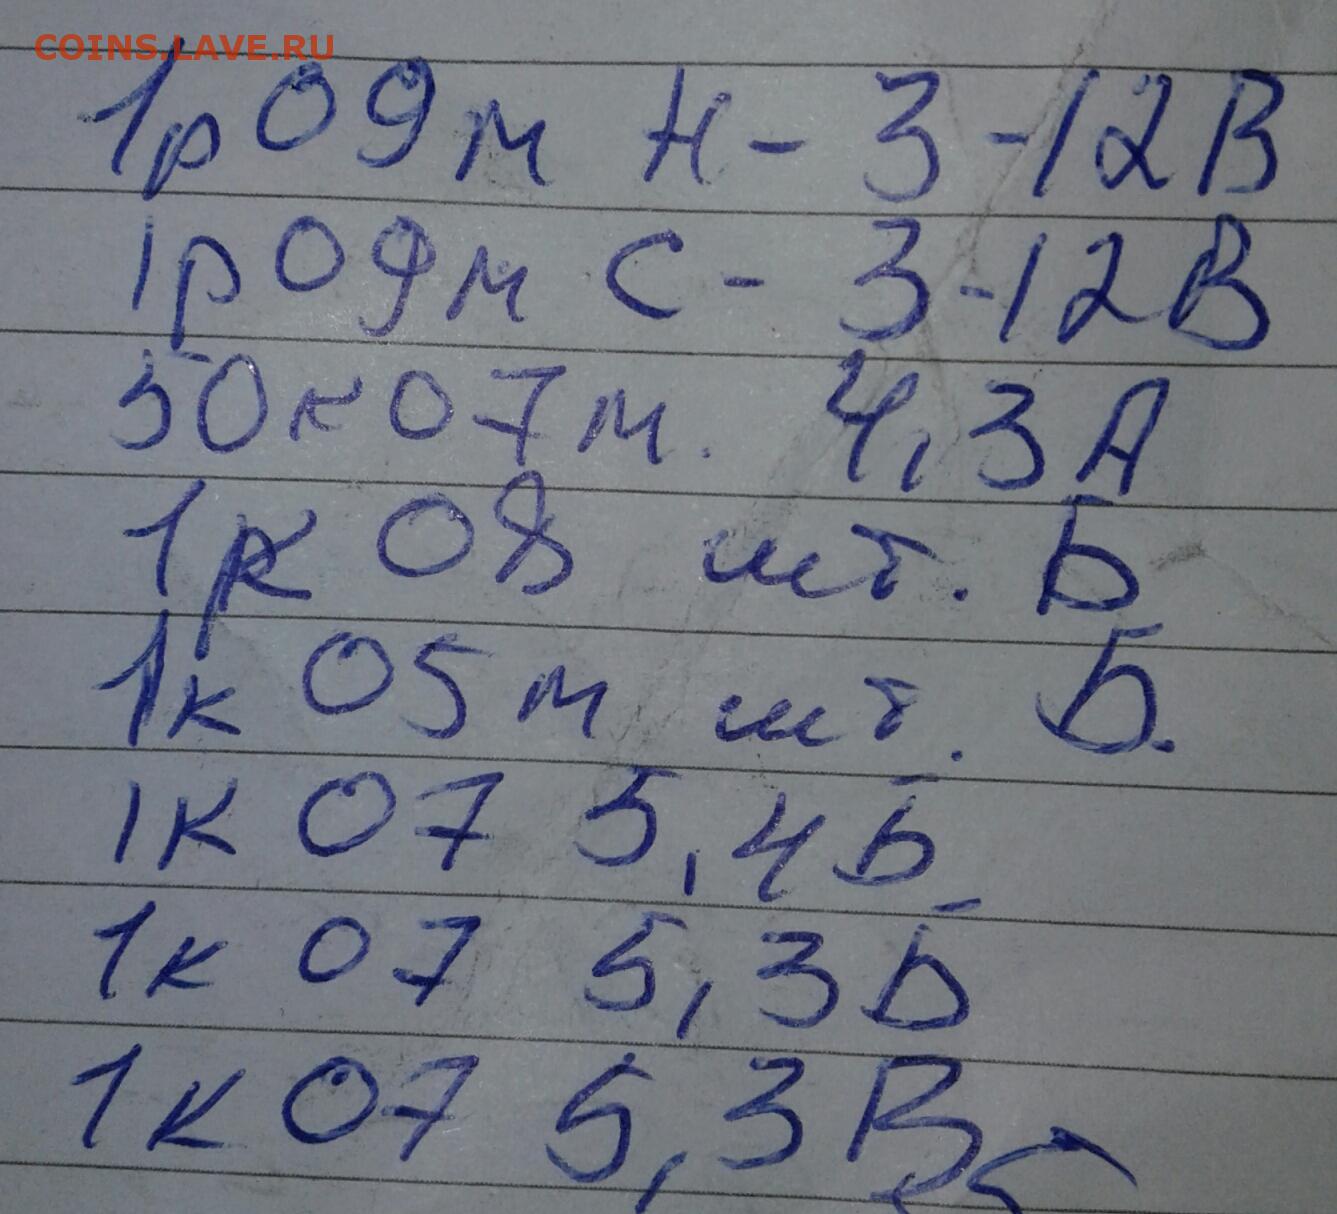 COINS.LAVE.RU
1р 09м Н - 3 - 12В
1р 09м С - 3 - 12В
50к 07м. 4,3А
1к 08 шт. Б
1к 05м шт. Б.
1к 07 5,4Б
1к 07 5,3Б
1к 07 5,3В